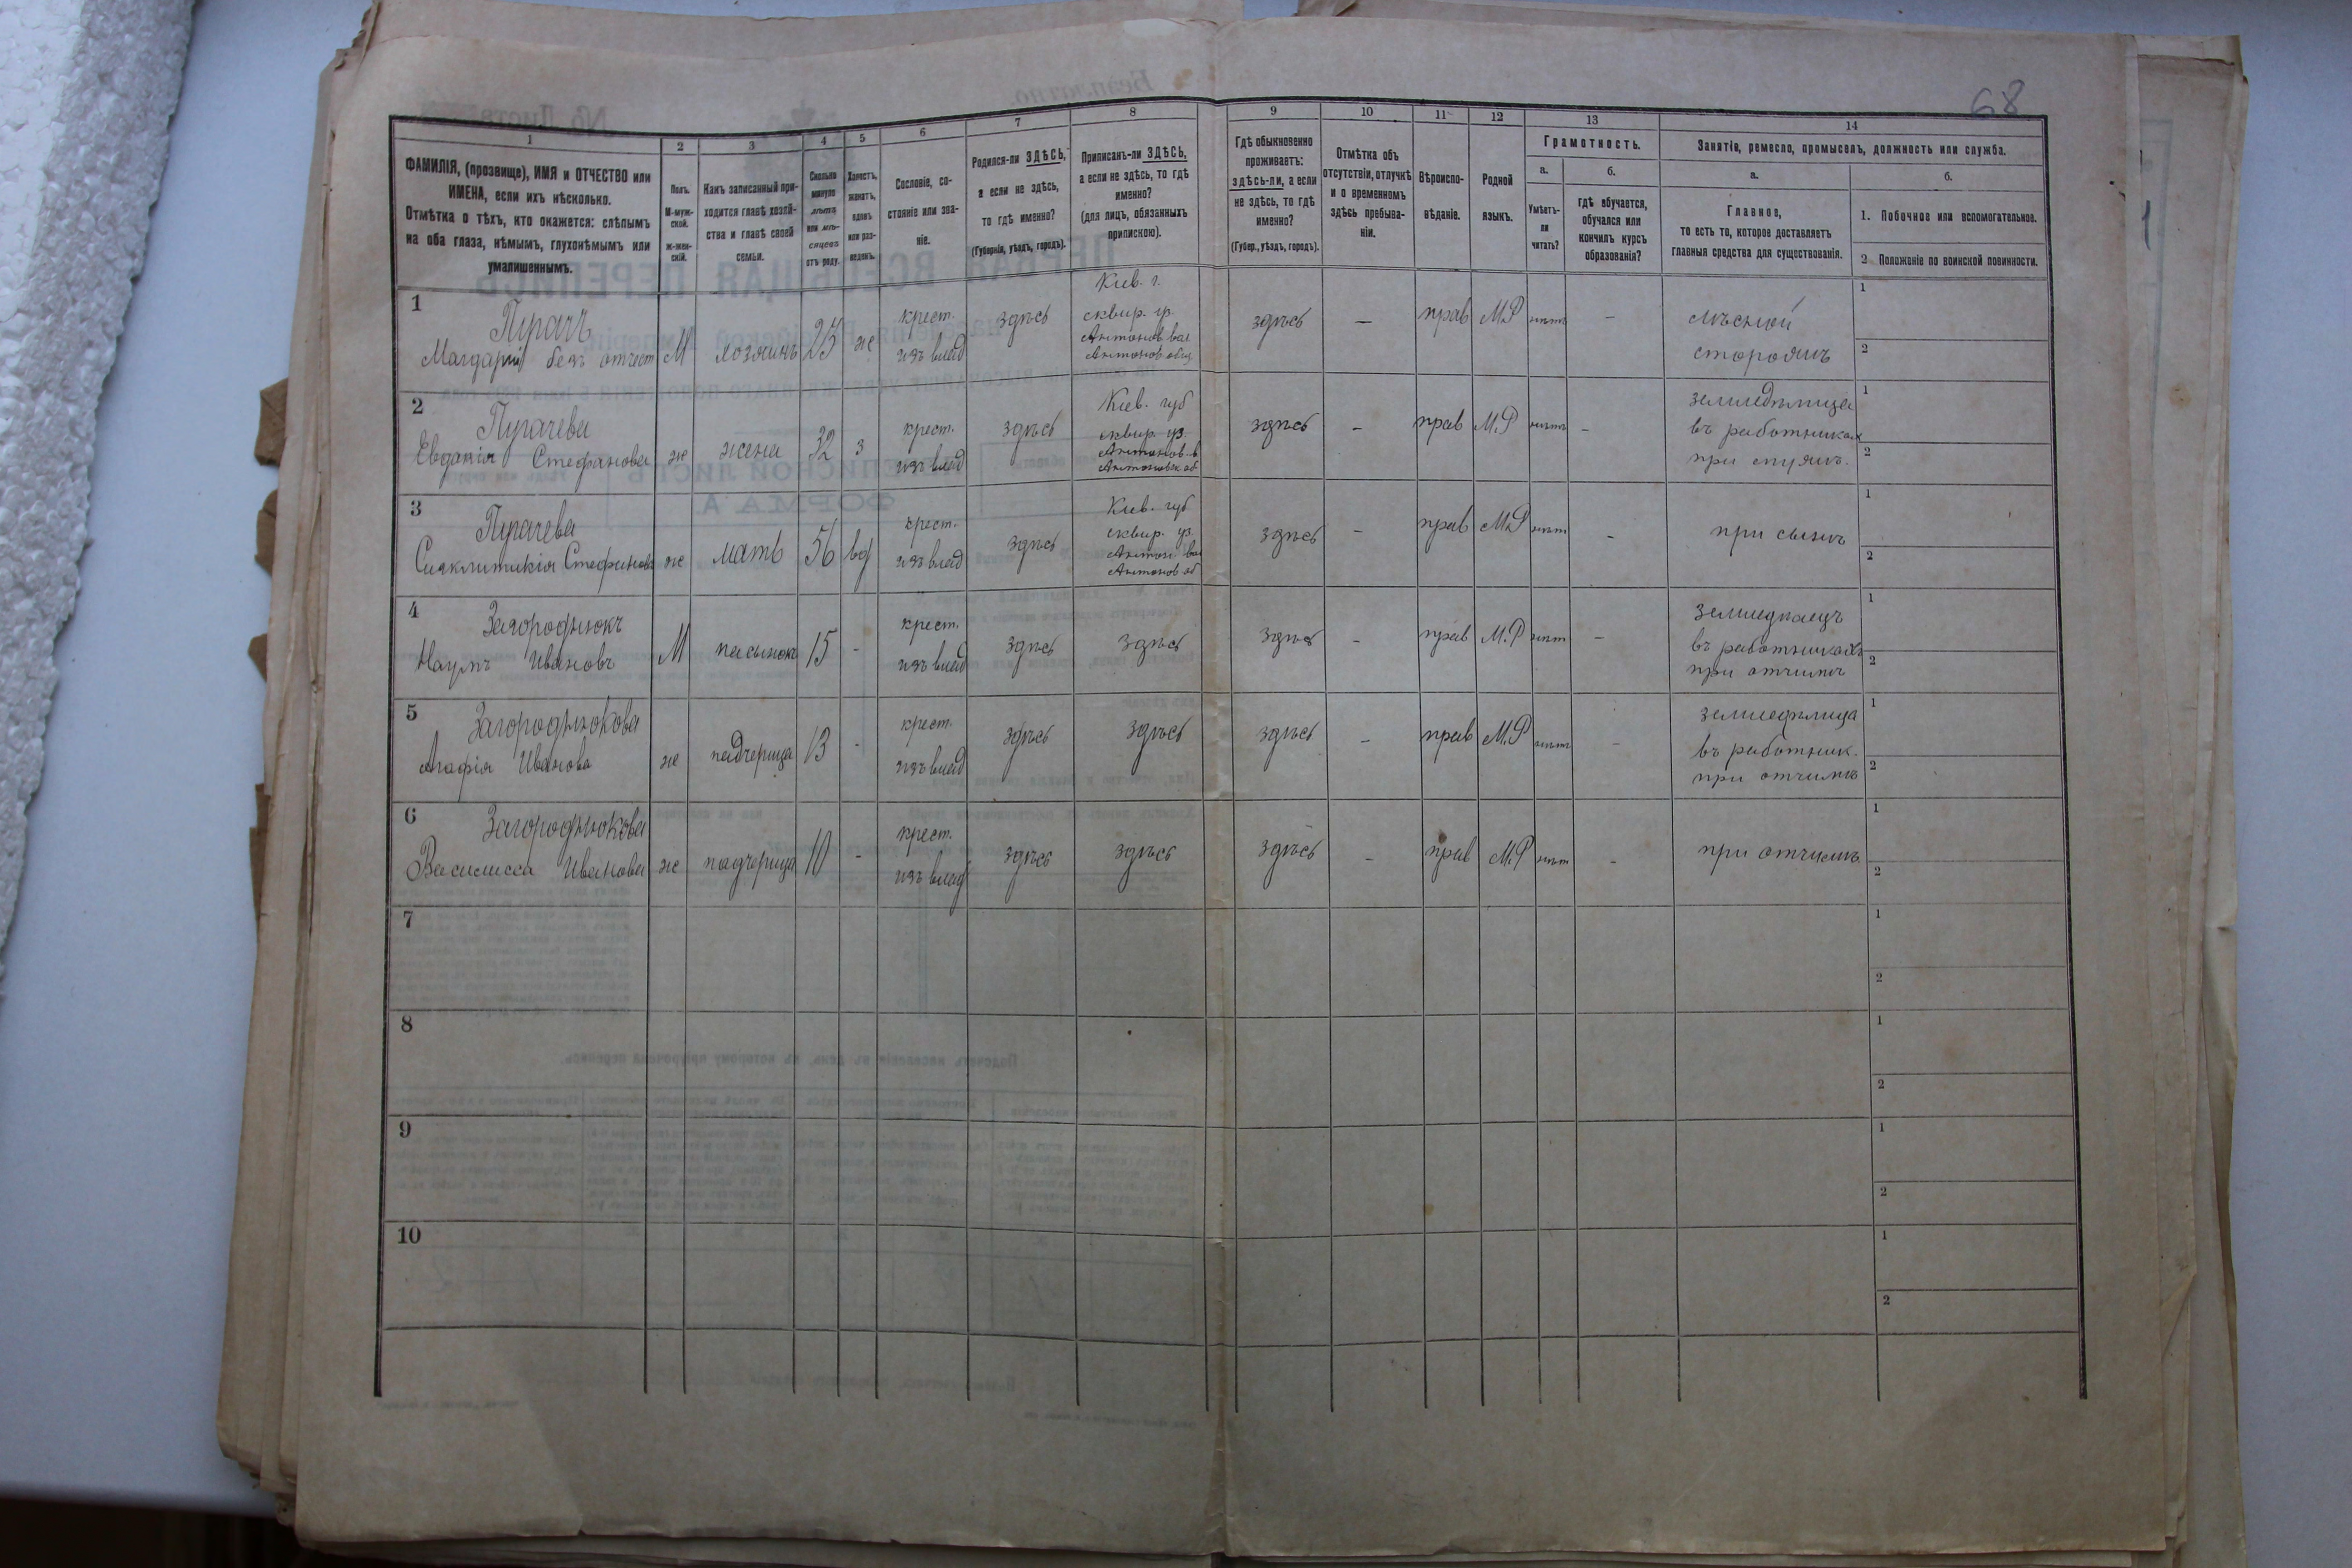 68
1
2
3
4
5
6
7
8
9
10
11
12
13
14
ФАМИЛІЯ, (прозвище), ИМЯ и ОТЧЕСТВО или
ИМЕНА, если ихъ нѣсколько.
Отмѣтка о тѣхъ, кто окажется: слѣпымъ
на оба глаза, нѣмымъ, глухонѣмымъ или
умалишеннымъ.
Полъ.
М-муж-
ской.
Ж-жен-
скій.
Какъ записанный при-
ходится главѣ хозяй-
ства и главѣ своей
семьи.
Сколько
минуло
лѣтъ
или мѣ-
сяцевъ
отъ роду.
Холостъ,
женатъ,
вдовъ
или раз-
веденъ.
Сословіе, со-
стояніе или зва-
ніе.
Родился-ли ЗДѢСЬ,
а если не здѣсь,
то гдѣ именно?
(Губернія, уѣздъ, городъ).
Приписанъ-ли ЗДѢСЬ,
а если не здѣсь, то гдѣ
именно?
(для лицъ, обязанныхъ
припискою).
Гдѣ обыкновенно
проживаетъ:
здѣсь-ли, а если
не здѣсь, то гдѣ
именно?
(Губер., уѣздъ, городъ).
Отмѣтка объ
отсутствіи, отлучкѣ
и о временномъ
здѣсь пребыва-
ніи.
Вѣроиспо-
вѣданіе.
Родной
языкъ.
Грамотность.
а.
Умѣетъ-
ли
читать?
б.
гдѣ обучается,
обучался или
кончилъ курсъ
образованія?
Занятіе, ремесло, промыселъ, должность или служба.
а.
Главное,
то есть то, которое доставляетъ
главныя средства для существованія.
б.
1. Побочное или вспомогательное.
2 Положеніе по воинской повинности.
1
Пугачъ
безъ отчест
М
хозяинъ
25
ж
крест.
изъ влад
здѣсь
Кіев. г.
сквир. у.
Антонов вол
Антонов общ
здѣсь
—
прав
М.Р
нѣтъ
—
лѣсной
сторожъ
1
2
2
Пугачева
Евдокія Стефанова
ж
жена
32
з
крест.
изъ влад
здѣсь
Кіев. губ
сквир. уз.
Антонов. в
Антоновск об
здѣсь
—
прав
М.Р
нѣтъ
—
земледѣлица
въ работникахъ
при мужѣ.
1
2
3
Пугачева
Синклитикія Стефанова
ж
мать
56
вд
крест.
изъ влад
здѣсь
Кіев. губ
сквир. уз.
Антон вол
Антонов об
здѣсь
—
прав
М.Р
нѣт
—
при сынѣ
1
2
4
Загороднюкъ
Наумъ Ивановъ
М
пасынок
15
-
крест.
изъ влад
здѣсь
здѣсь
здѣсь
—
прав
М.Р
нѣт
—
земледѣлецъ
въ работникахъ
при отчимѣ
1
2
5
Загороднюкова
Агафія Иванова
ж
падчерица
13
-
крест.
изъ влад
здѣсь
здѣсь
здѣсь
—
прав
М.Р
нѣт
—
земледѣлица
въ работник.
при отчимѣ
1
2
6
Загороднюкова
Василисса Иванова
ж
падчерица
10
-
крест.
изъ влад
здѣсь
здѣсь
здѣсь
—
прав
М.Р
нѣт
—
при отчимѣ
1
2
7
1
2
8
1
2
9
1
2
10
1
2